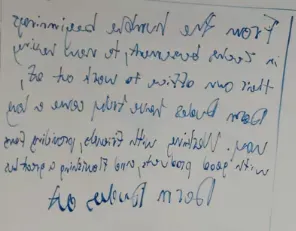 From the humble beginnings
in Zachs basement, to now having
their own office to work out of,
Dorm Dudes have truly come a long
way. with Friends, providing Fans
with good products, and a great
Dorm Dudes out